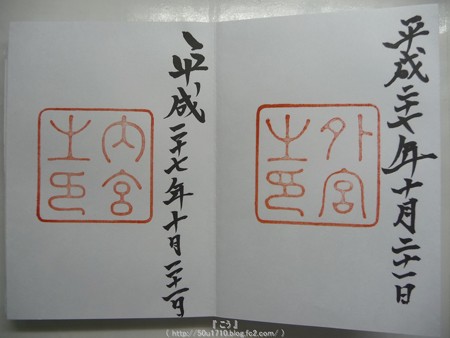 平成二十七年十月二十一日
外宮之印
平成二十七年十月二十一日
内宮之印
『こう』
( http://50u1710.blog.fc2.com/ )